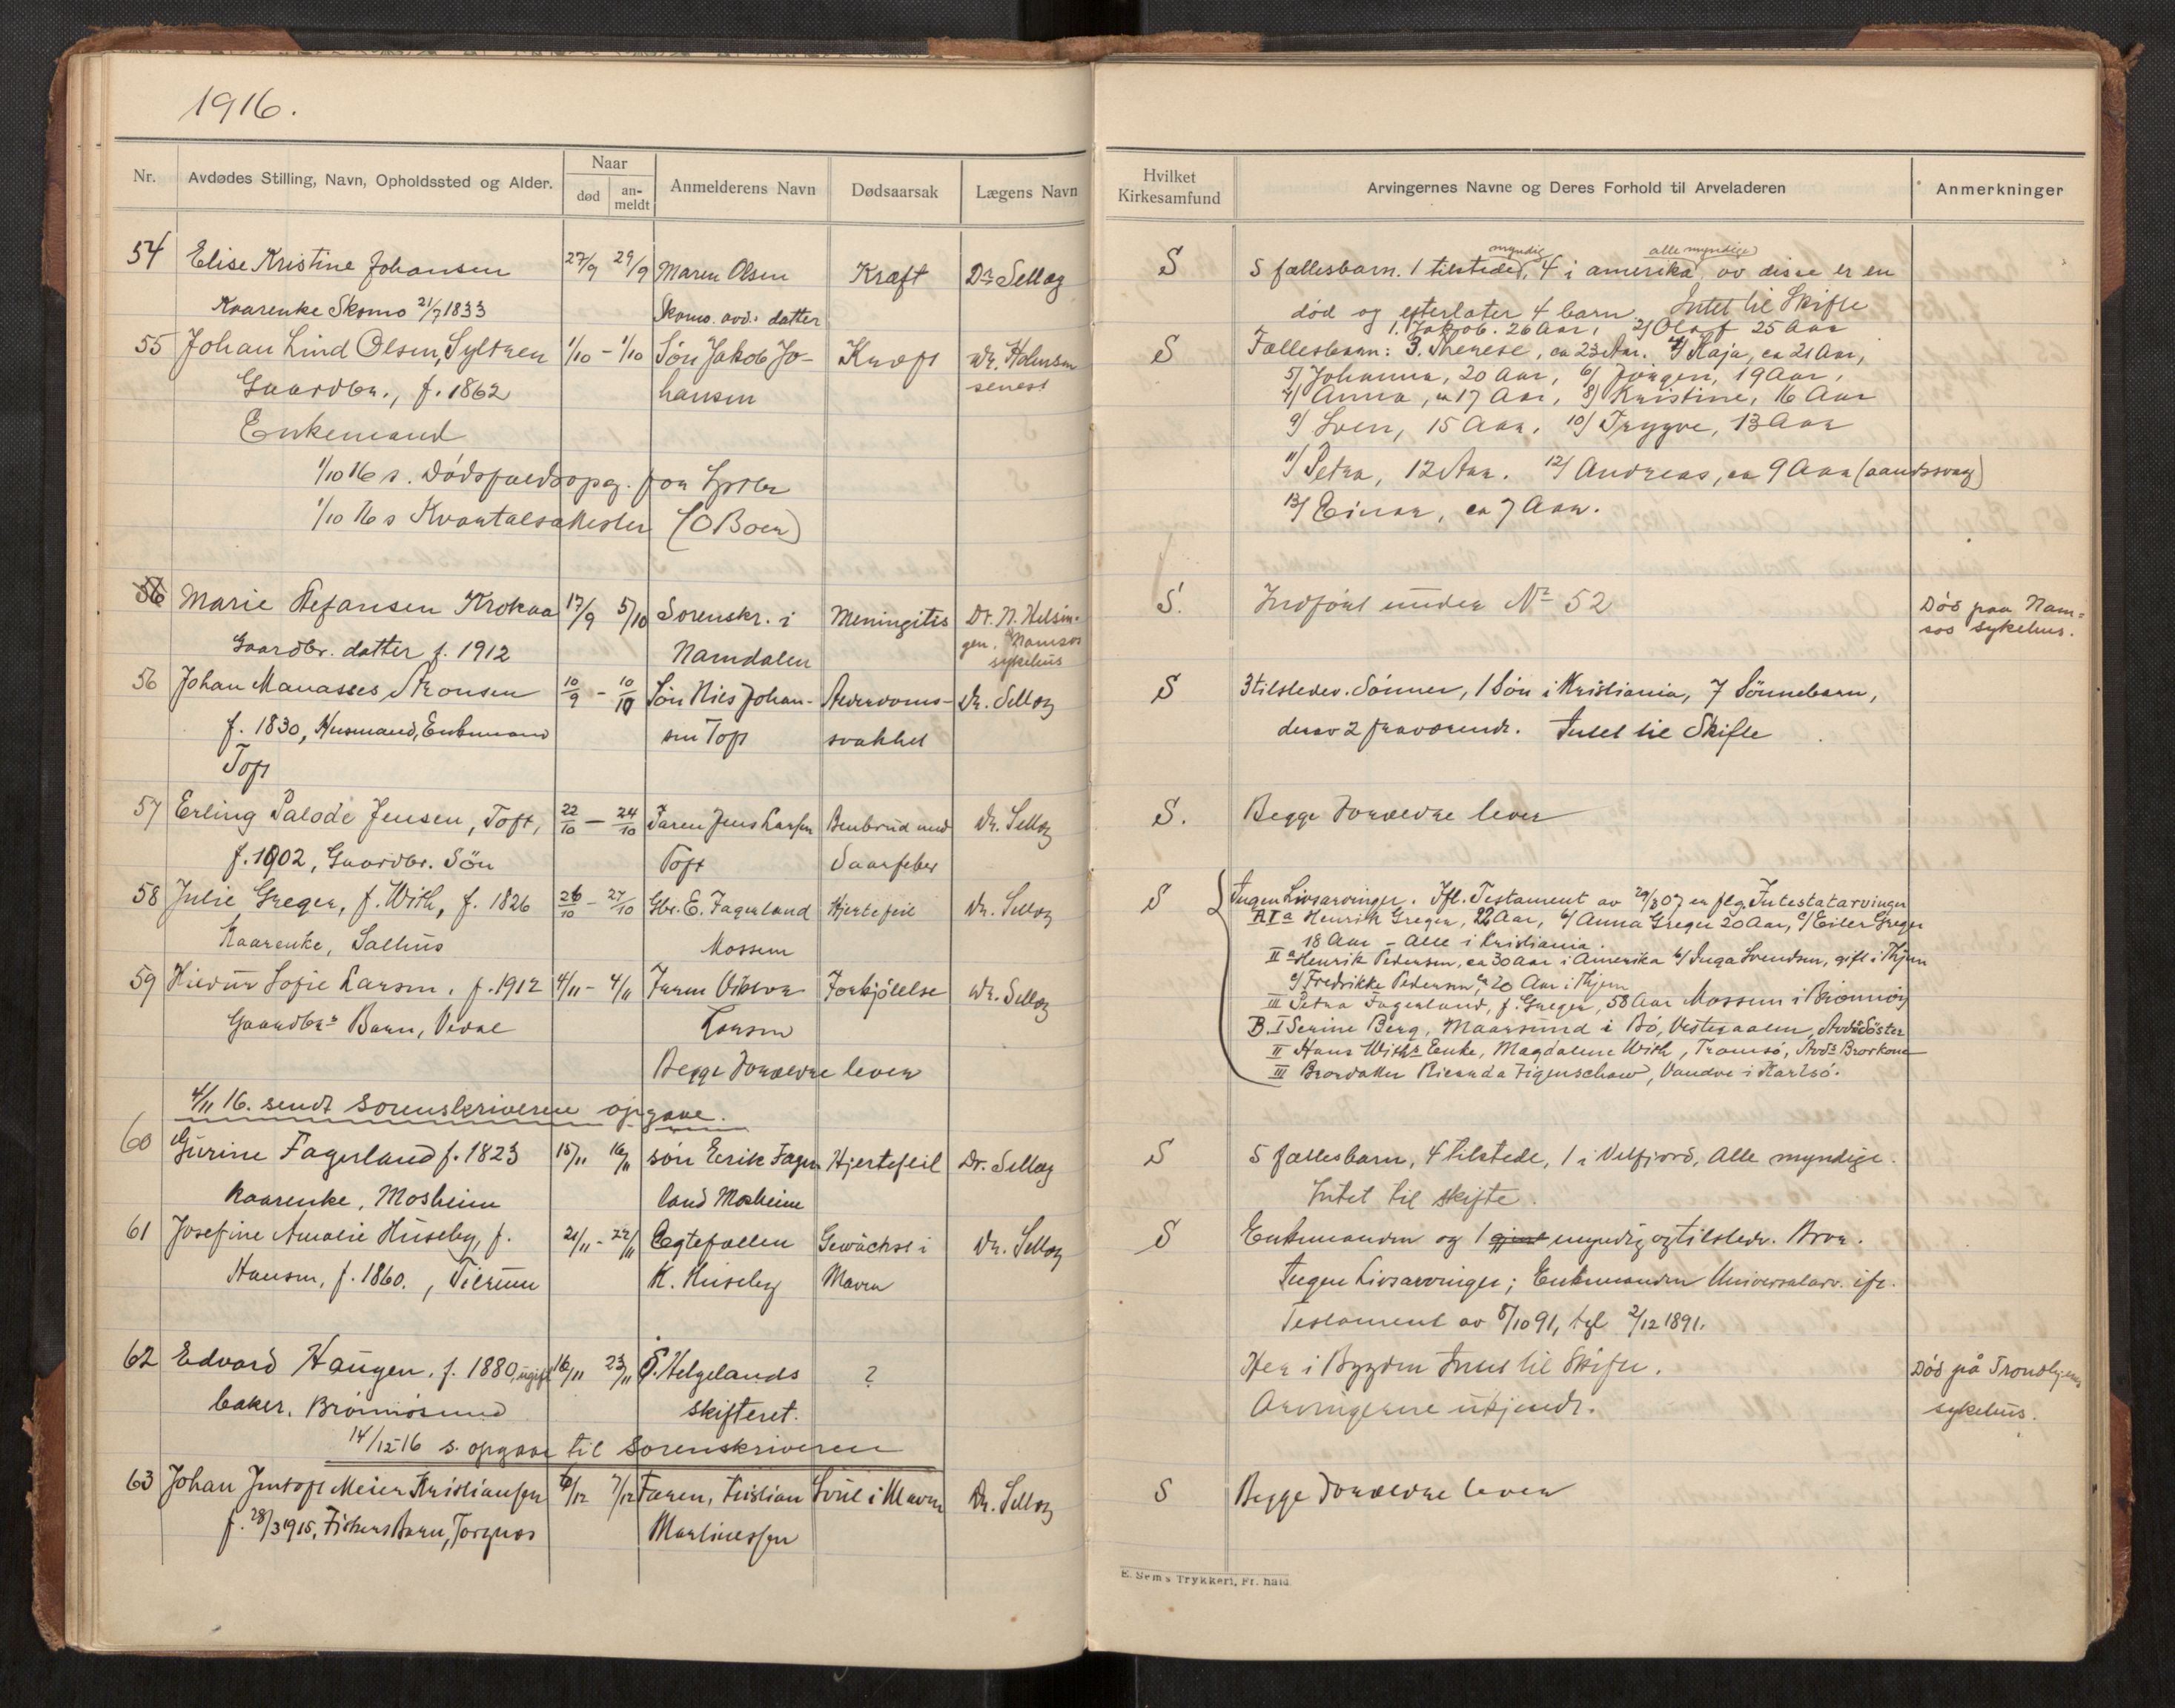 1916.
Nr.
Avdødes Stilling, Navn, Opholdssted og Alder.
Naar
død
an-
meldt
Anmelderens Navn
Dødsaarsak
Lægens Navn
Hvilket
Kirkesamfund
Arvingernes Navne og Deres Forhold til Arveladeren
Anmerkninger
54 Elise Kristine Johansen 27/9 29/9 Maren Olsen Kræft Dr Sellæg
Kaarenke Skomo 21/7 1833 Skomo. avd. datter
S
myndig alle myndige
5 fællesbarn. 1 tilstede, 4 i amerika av disse er en
død og efterlater 4 barn. Intet til Skifte
55 Johan Lind Olsen, Syltren 1/10 - 1/10 Søn Jakob Jo- Kræft Dr. Holmsen
Gaardbr., f. 1862 hansen senest
Enkemand
1/10 16 s. Dødsfaldsopg. for
1/10 16 s Kvartalsattester (O Boen)
S
1. Jakob. 26 Aar, 2) Olaf 25 Aar
Fællesbarn: 3. Therese, ca 23 Aar. 4) Kaja, ca 21 Aar,
5) Johanna, 20 Aar, 6) Jørgen, 19 Aar,
7) Anna, ca 17 Aar, 8) Kristine, 16 Aar
9) Sven, 15 Aar, 10) Trygve, 13 Aar
11) Petra, 12 Aar. 12) Andreas, ca 9 Aar (aandssvag)
13) Einar, ca 7 Aar.
56 Marie Stefansen Krokaa 17/9 5/10 Sorenskr. i Meningitis Dr. N. Helsin-
Gaardbr. datter f. 1912 Namdalen gen, Namsos
sykehus
S. Indført under No 52
Død paa Nam-
sos sykehus.
56 Johan Manasses Aronsen 10/9 - 10/10 Søn Nils Johan- Alderdoms- Dr. Sellæg
f. 1830, Husmand, Enkemand sen Toft svakhet
Toft
S 3 tilstedev. Sønner, 1 Søn i Kristiania, 7 Sønnebarn,
derav 2 fraværende. Intet til Skifte
57 Erling Palode Jensen, Toft, 22/10 - 24/10 Faren Jens Larsen Benbrud med Dr. Sellæg
f. 1902, Gaardbr. Søn Toft Saarfeber
S. Begge Forældre lever
58 Julie Greger, f. With, f. 1826 26/10 - 27/10 Gbr. E. Fagerland Hjertefeil Dr. Sellæg
Kaarenke, Salhus Mossem
S
Ingen Livsarvinger. Ifl. Testament av 29/8 07 er flg. Intestatarvinger
A I a Henrik Greger, 22 Aar, b/ Anna Greger 20 Aar, c/ Eiler Greger
18 Aar - Alle i Kristiania.
II a Henrik Pedersen, ca 30 Aar i Amerika b/ Inga Svendsen, gift i Thjem
c/ Fredrikke Pedersen, ca 20 Aar i Thjem
III Petra Fagerland, f. Greger, 58 Aar Mossem i Brønnøy
B. I Serine Berg, Maarsund i Bø, Vesteraalen, Avdøs Søster
II Hans Withs Enke, Magdalene With, Tromsø, Avds Brorkone
III Brordatter Ricarda Figenschow, Vandve i Karlsø.
59 Hildur Sofie Larsen, f. 1912 4/11 - 4/11 Faren Viktor Forkjølelse Dr. Sellæg
Gaardbrs Barn, Vedal Larsen
Begge Forældre lever
4/11 16. sendt sorenskriveren opgave.
60 Gurine Fagerland f. 1823 15/11 16/11 søn Erik Fager Hjertefeil Dr. Sellæg
Kaarenke, Mosheim land Mosheim
S 5 fællesbarn, 4 tilstede, 1 i Velfjord, Alle myndige.
Intet til skifte.
61 Josefine Amalie Huseby, f. 21/11 - 22/11 Egtefællen Gewächse i Dr. Sellæg
Hansen, f. 1860., Tilrem K. Huseby Maven
S Enkemanden og 1 myndig og tilstedv. Bror.
Ingen Livsarvinger; Enkemanden Universalarv. ifl.
Testament av 5/10 91, tgl 2/12 1891.
62 Edvard Haugen. f. 1880, ugift 16/11 23/11 S. Helgelands ?
baker. Brønnøsund skifteret.
Her i Bygden Intet til Skifte.
Arvingerne ukjendt.
Død på Trondhjems
sykehus.
14/12 16 s. opgave til sorenskriveren
63 Johan Jentoft Meier Kristiansen 6/12 7/12 Faren, Kristian Svul i Maven Dr. Sellæg
f. 28/3 1915, Fiskers Barn, Torgnes Martinessen
S Begge Forældre lever
E. Sem's Trykkeri, Fr. hald.